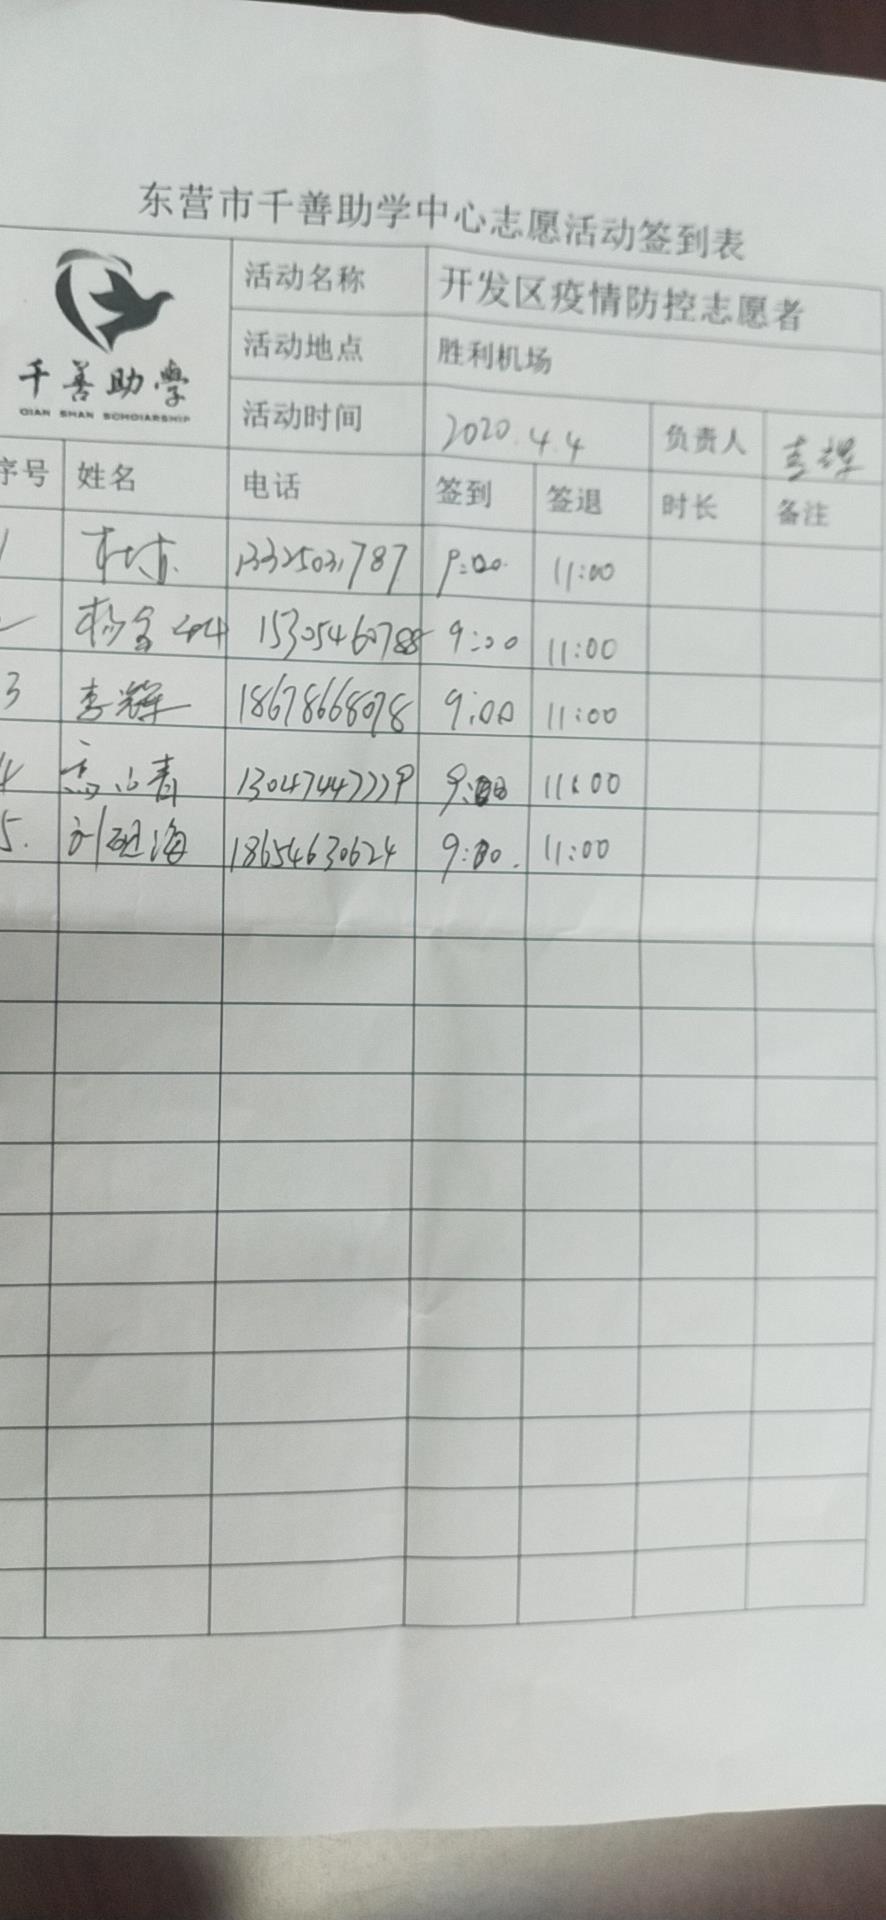 东营市千善助学中心志愿活动签到表
千善助学
QIAN SHAN SCHOIARSHIP
活动名称 开发区疫情防控志愿者
活动地点 胜利机场
活动时间 2020.4.4 负责人 李辉
序号 姓名 电话 签到 签退 时长 备注
1 13325031787 9:00 11:00
2 15305460788 9:00 11:00
3 李辉 18678668078 9:00 11:00
4 9:00 11:00
5. 海 18654630624 9:00. 11:00